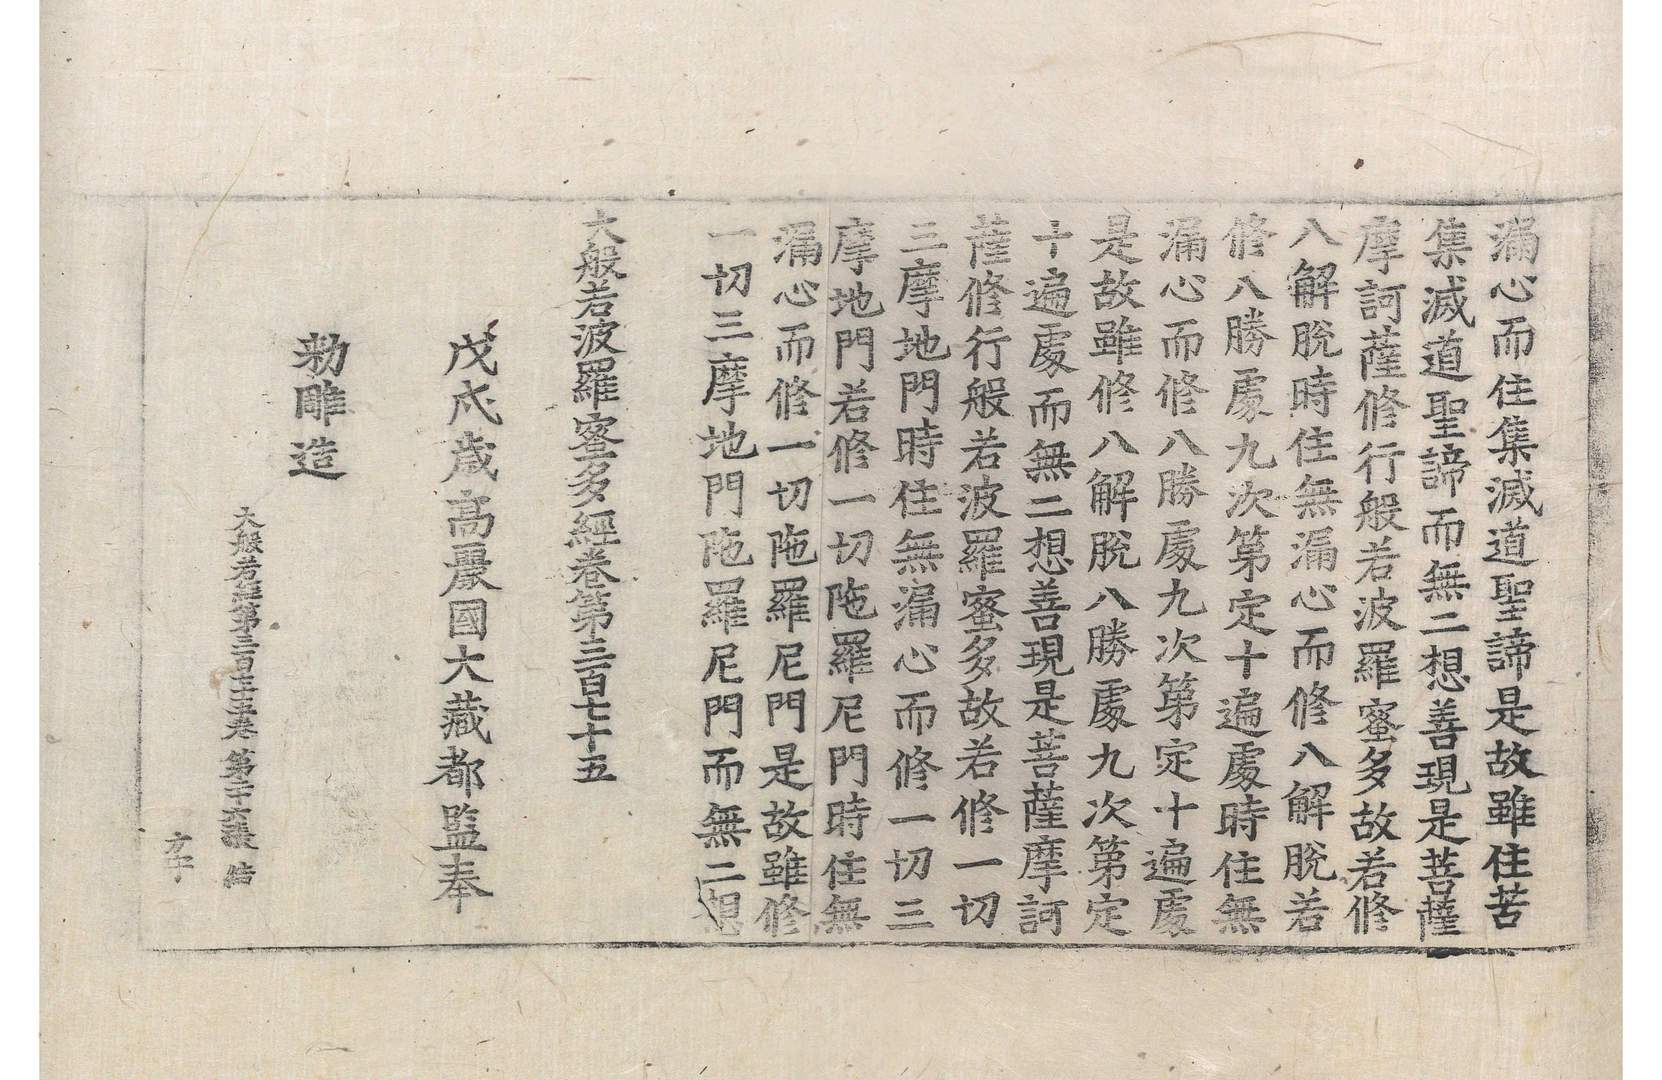 漏心而住集滅道聖諦是故雖住苦
集滅道聖諦而無二想善現是菩薩
摩訶薩修行般若波羅蜜多故若修
八解脫時住無漏心而修八解脫若
修八勝處九次第定十遍處時住無
漏心而修八勝處九次第定十遍處
是故雖修八解脫八勝處九次第定
十遍處而無二想善現是菩薩摩訶
薩修行般若波羅蜜多故若修一切
三摩地門時住無漏心而修一切三
摩地門若修一切陁羅尼門時住無
漏心而修一切陁羅尼門是故雖修
一切三摩地門陁羅尼門而無二想
大般若波羅蜜多經卷第三百七十五
戊戌歲高麗國大藏都監奉
勅雕造
大般若經第三百七十五卷 第二十六張